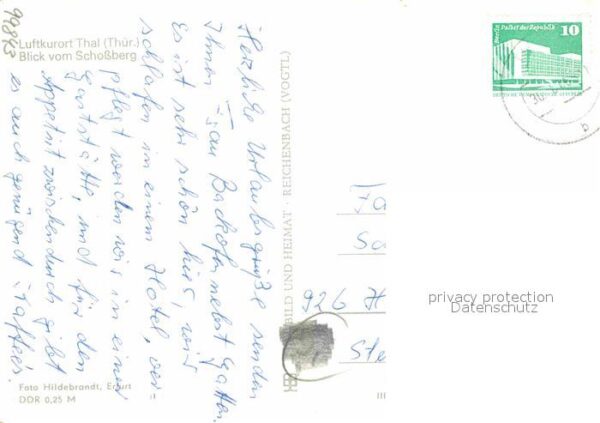 99863
Luftkurort Thal (Thür.)
Blick vom Schoßberg
Herzliche Urlaubsgrüße senden
Ihnen Fam Backofen nebst Gatten.
Es ist sehr schön hier, wir
schlafen in einem Hotel, ver=
pflegt werden wir in einer
Gaststätte, und für den
Appetit zwischendurch gibt
es auch genügend Kaffees.
Foto Hildebrandt, Erfurt
DDR 0,25 M
BILD UND HEIMAT · REICHENBACH (VOGTL)
Berlin Palast der Republik
10
DEUTSCHE DEMOKRATISCHE REPUBLIK
30.
b
Fa
Sa
926 H
Ste
III
privacy protection
Datenschutz